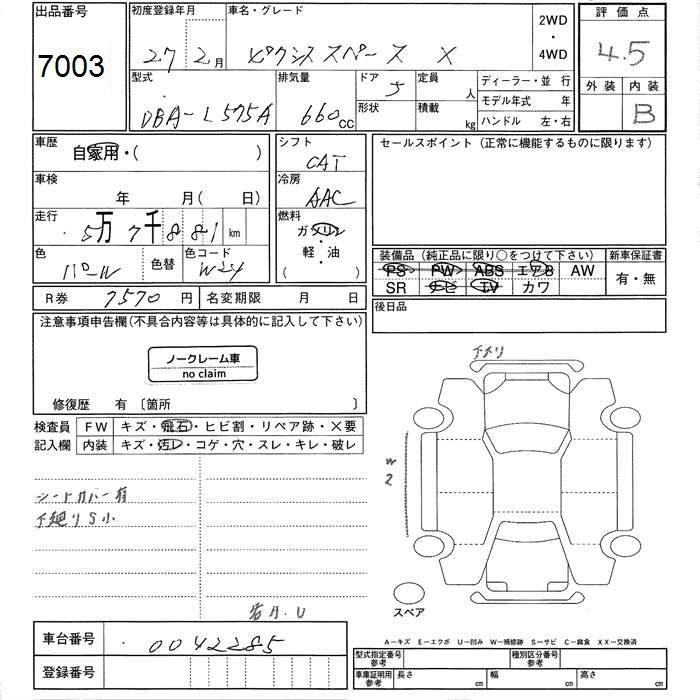 出品番号
7003
初度登録年月
27 2月
車名・グレード
ピクシス スペース X
2WD
・
4WD
評価点
4.5
外装 内装
B
型式
DBA-L575A
排気量
660cc
ドア
5
形状
定員
人
積載
kg
ディーラー・並行
モデル年式 年
ハンドル 左・右
車歴
自家用・( )
車検
年 月( 日)
走行
5万7千881km
色
パール
色替
色コード
W24
シフト
CAT
冷房
AAC
燃料
ガソリン
・
軽・油
( )
セールスポイント(正常に機能するものに限ります)
装備品(純正品に限り○をつけて下さい)
PS PW ABS エアB AW
SR ナビ TV カワ
新車保証書
有・無
R券 7570円
名変期限 月 日
後日品
注意事項申告欄(不具合内容等は具体的に記入して下さい)
ノークレーム車
no claim
修復歴 有〔箇所 〕
検査員
記入欄
FW キズ・飛石・ヒビ割・リペア跡・×要
内装 キズ・汚レ・コゲ・穴・スレ・キレ・破レ
シートカバー有
下廻りS小
U
下メリ
W2
スペア
A-キズ E-エクボ U-凹み W-補修跡 S-サビ C-腐食 XX-交換済
車台番号
0042285
登録番号
型式指定番号
参考
種別区分番号
参考
車庫証明用
参考
長さ cm
幅 cm
高さ cm